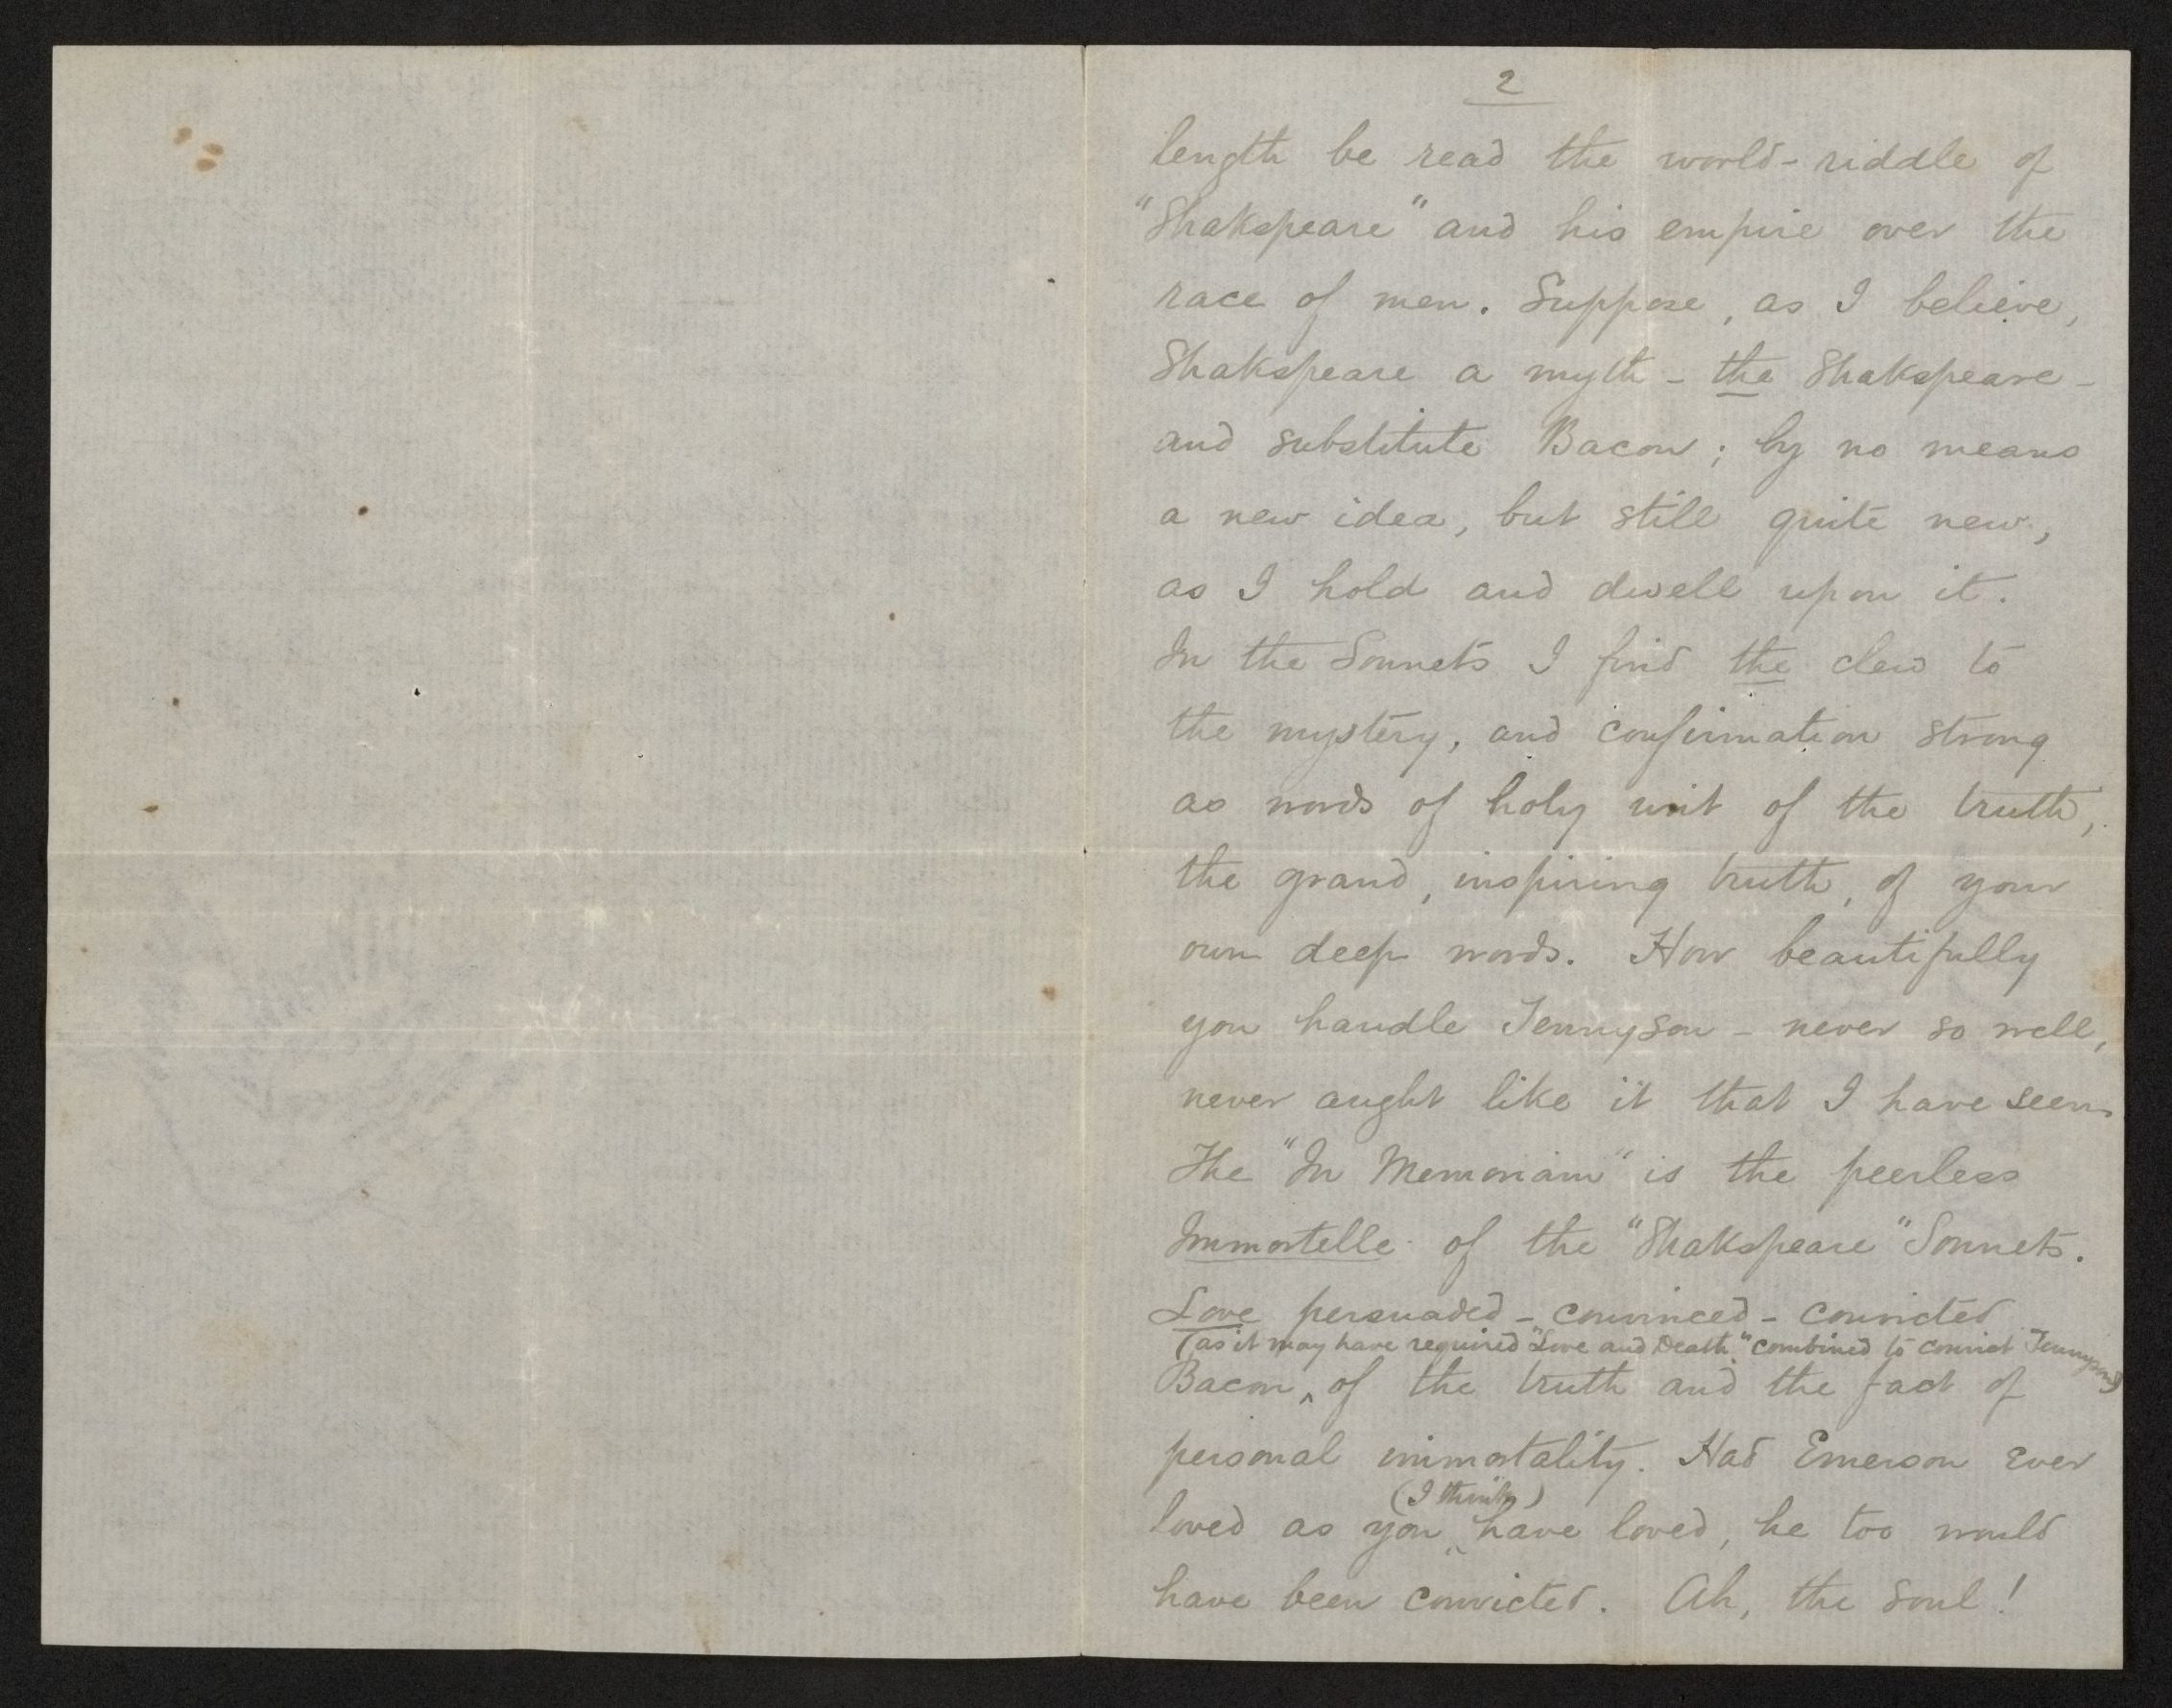 2
length be read the world-riddle of
"Shakspeare" and his empire over the
race of men. Suppose, as I believe,
Shakspeare a myth - the Shakspeare -
and substitute Bacon; by no means
a new idea, but still quite new,
as I hold and dwell upon it.
In the Sonnets I find the clew to
the mystery, and confirmation strong
as words of holy writ of the truth,
the grand, inspiring truth, of your
own deep words. How beautifully
you handle Tennyson - never so well,
never aught like it that I have seen.
The "In Memoriam" is the peerless
Immortelle of the "Shakspeare" Sonnets.
Love persuaded - convinced - convicted
(as it may have required "Love and Death" combined to convict Tennyson)
Bacon ^ of the truth and the fact of
personal immortality. Had Emerson ever
(I think)
loved as you ^ have loved, he too would
have been convicted. Ah, the soul!